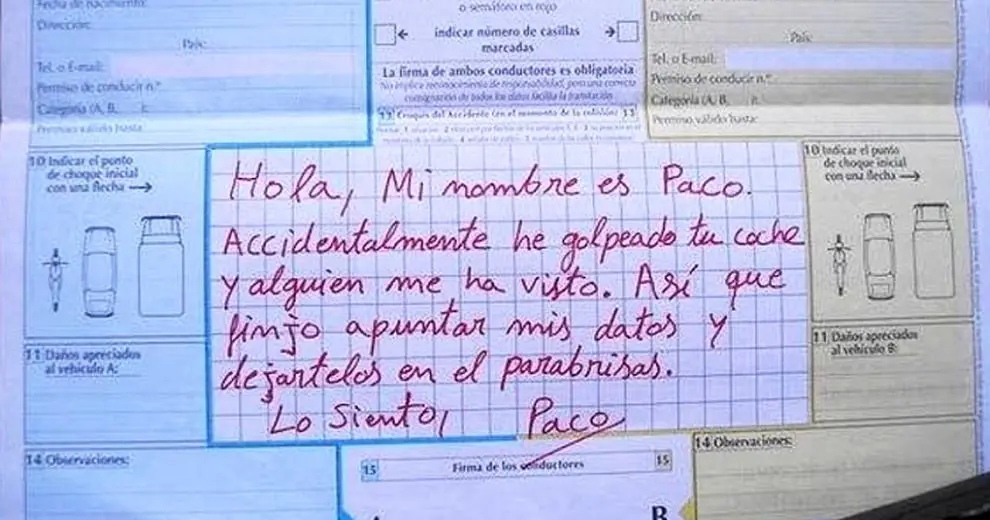 Fecha de nacimiento:
Dirección:
País:
Tel. o E-mail:
Permiso de conducir n.º
Categoría (A, B,
Permiso válido hasta:
o semáforo en rojo
indicar número de casillas
marcadas
La firma de ambos conductores es obligatoria
No implica reconocimiento de responsabilidad, pero una correcta
consignación de todos los datos facilita la tramitación
13 Croquis del Accidente (en el momento de la colisión) 13
Dirección:
País:
Tel. o E-mail:
Permiso de conducir n.º
Categoría (A, B,
Permiso válido hasta:
10 Indicar el punto
de choque inicial
con una flecha →
11 Daños apreciados
al vehículo A:
14 Observaciones:
Hola, Mi nombre es Paco.
Accidentalmente he golpeado tu coche
y alguien me ha visto. Así que
finjo apuntar mis datos y
dejártelos en el parabrisas.
Lo Siento, Paco
10 Indicar el punto
de choque inicial
con una flecha →
11 Daños apreciados
al vehículo B:
14 Observaciones:
15 Firma de los conductores 15
B